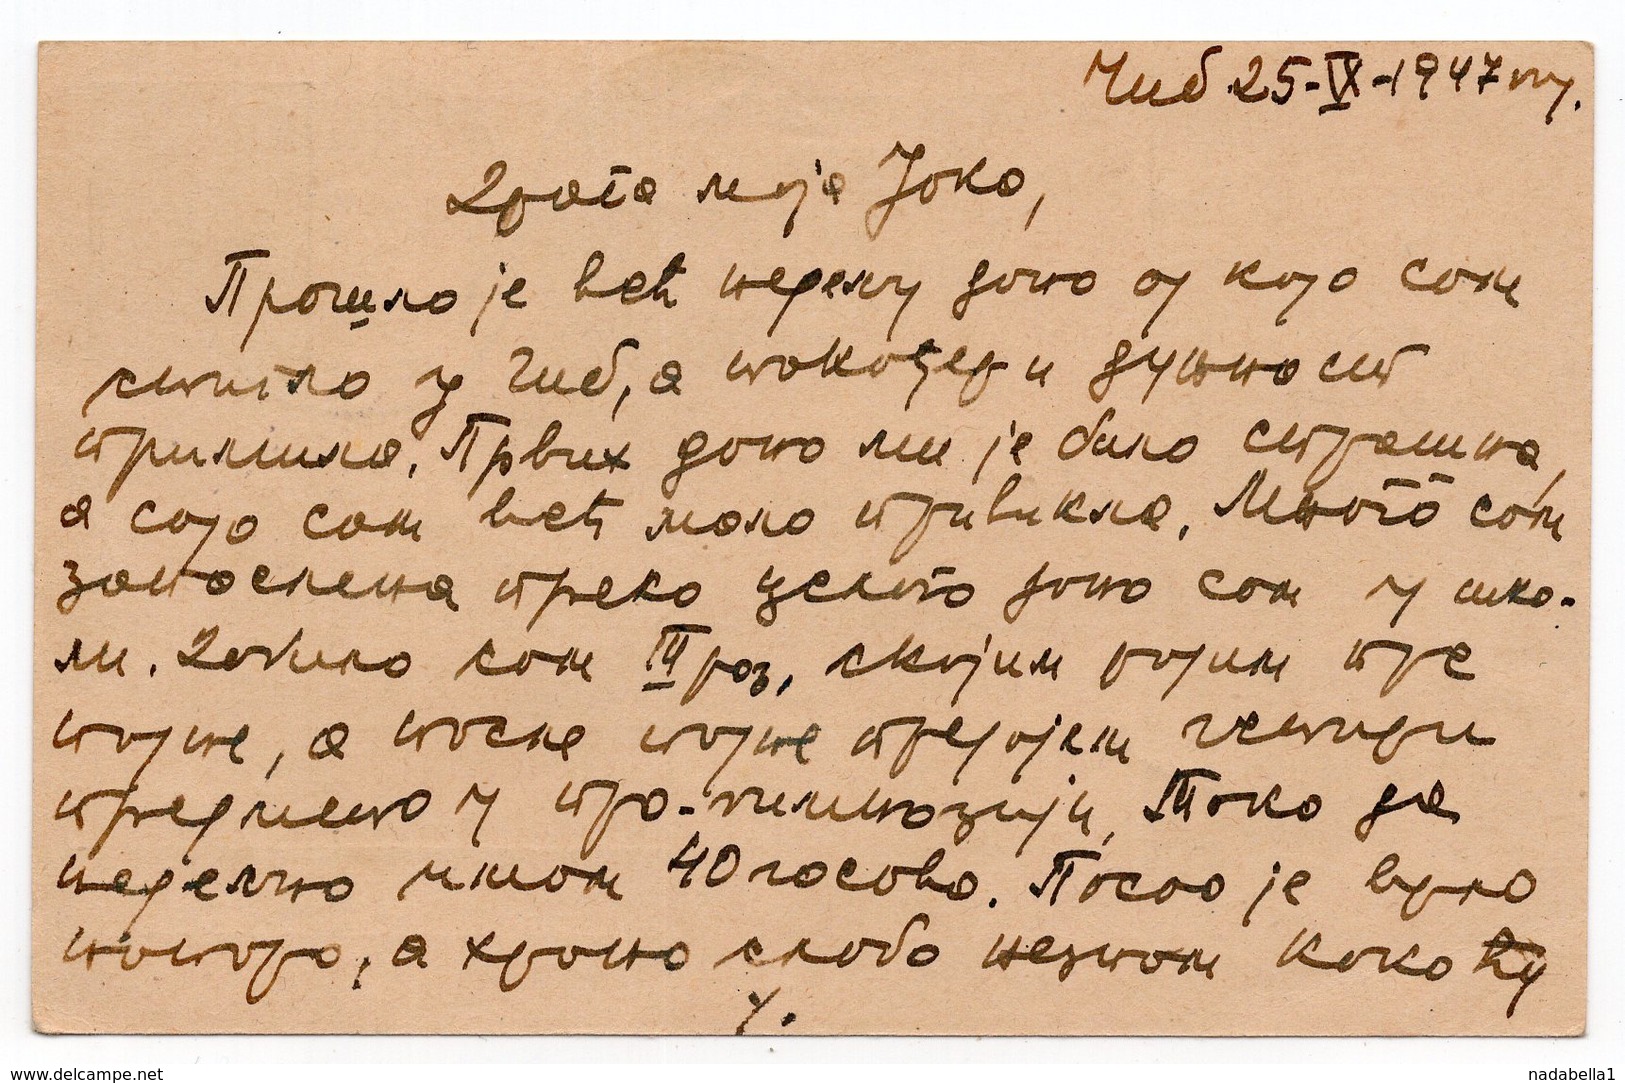 Чиб 25-IX-1947 г.
Драга моја Јока,
Прошло је већ недељу дана од када сам
стигла у Чиб, а такођер и дужност
примила. Првих дана ми је било страшна,
а сада сам већ мало привикла. Много сам
запослена преко целога дана сам у шко-
ли. Добила сам III раз, с којим радим пре
подне, а после подне предајем четири
предмета у про-гимназији, Тако да
недељно имам 40 часова. Посао је врло
напоран, а храна слаба незнам како ћу
у.
www.delcampe.net
nadabella1